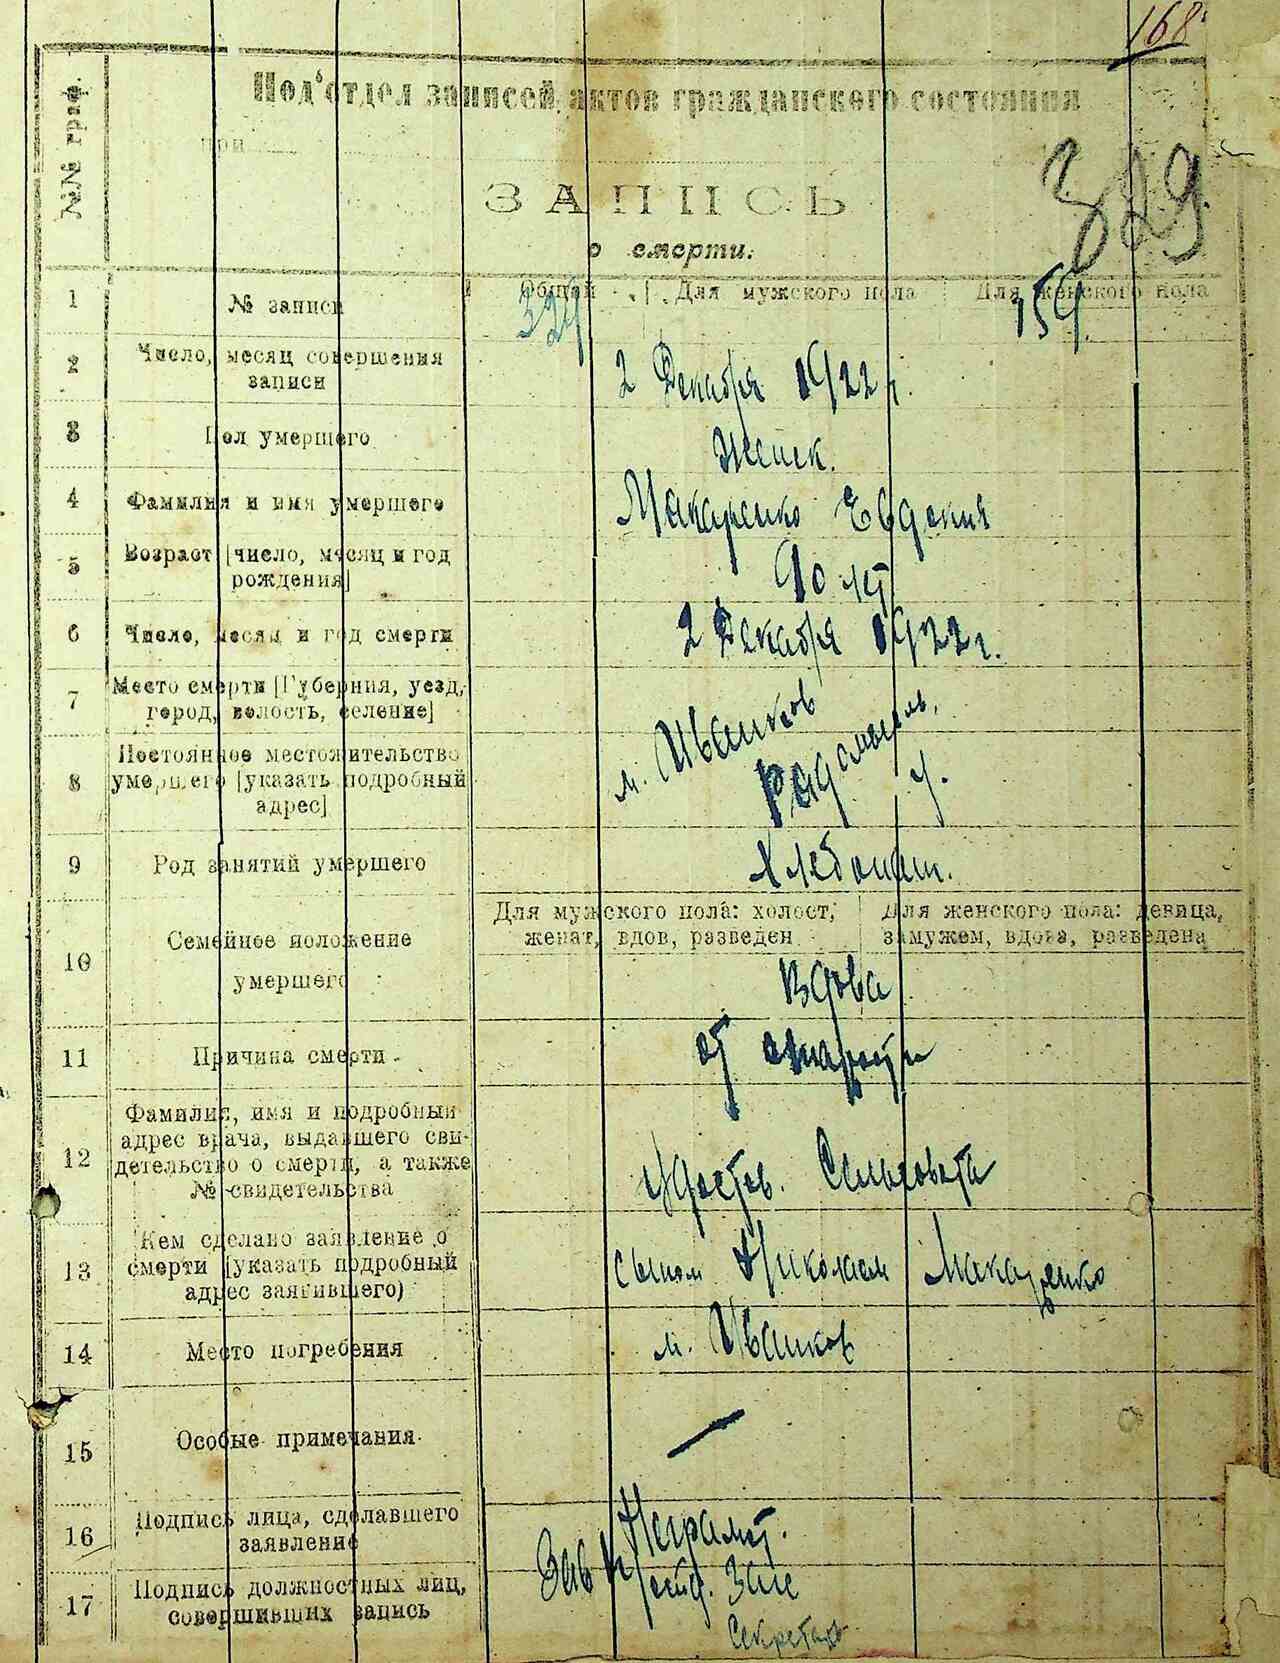 168
№№ граф.
Под'отдел записей актов гражданского состояния
при
ЗАПИСЬ
о смерти.
329
1 № записи Общий Для мужского пола Для женского пола
329 159
2 Число, месяц совершения
записи
2 Декабря 1922 г.
3 Пол умершего
Женск.
4 Фамилия и имя умершего
Макаренко Евдокия
5 Возраст [число, месяц и год
рождения]
90 лет
6 Число, месяц и год смерти
2 Декабря 1922 г.
7 Место смерти [Губерния, уезд,
город, волость, селение]
м. Иванков
8 Постоянное местожительство
умершего [указать подробный
адрес]
Радомысль, у.
9 Род занятий умершего
Хлебопаш.
10 Семейное положение
умершего
Для мужского пола: холост,
женат, вдов, разведен
Для женского пола: девица,
замужем, вдова, разведена
Вдова
11 Причина смерти
от старости
12 Фамилия, имя и подробный
адрес врача, выдавшего сви-
детельство о смерти, а также
№ свидетельства
удостов. Сельсовета
13 Кем сделано заявление о
смерти [указать подробный
адрес заявившего)
сыном Николаем Макаренко
14 Место погребения
м. Иванков
15 Особые примечания
16 Подпись лица, сделавшего
заявление
Неграмот.
17 Подпись должностных лиц,
совершивших запись
Зав
Секретарь